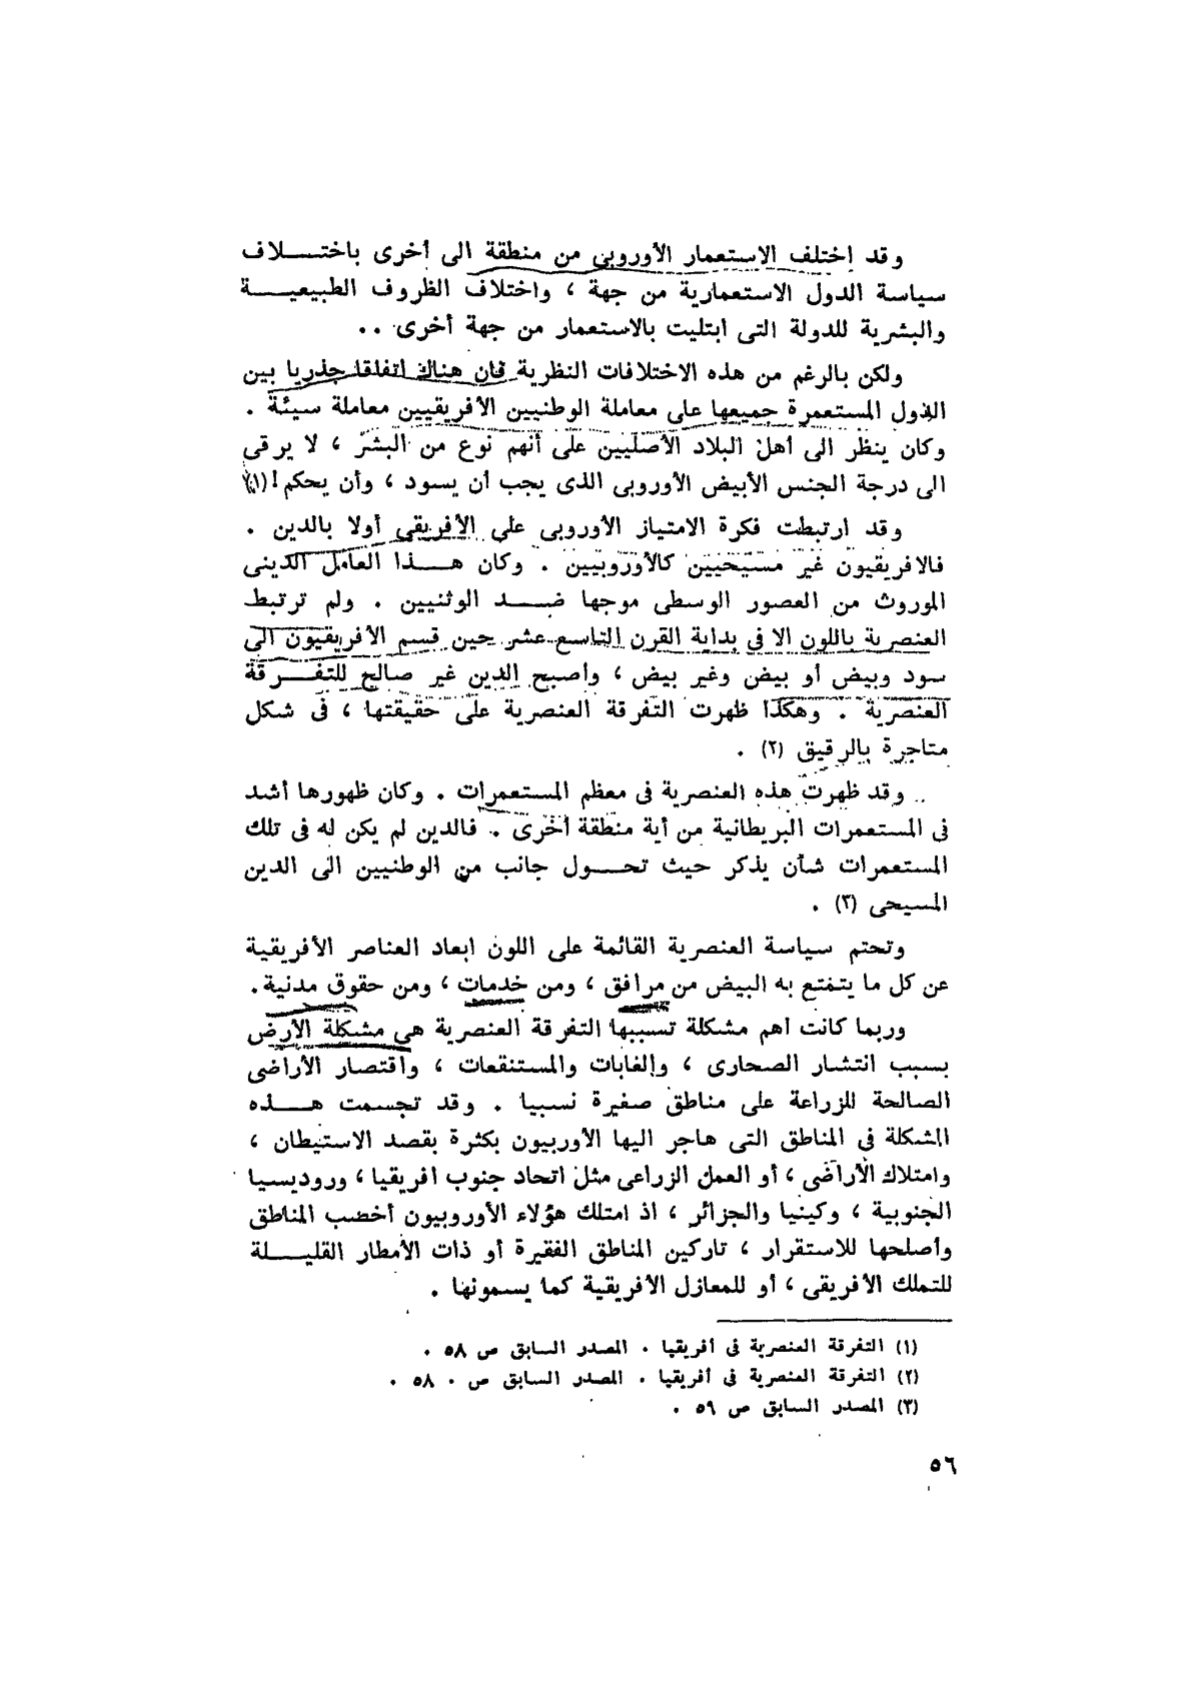 وقد اختلف الاستعمار الأوروبى من منطقة الى أخرى باختـــلاف
سياسة الدول الاستعمارية من جهة ، واختلاف الظروف الطبيعيـــة
والبشرية للدولة التى ابتليت بالاستعمار من جهة أخرى ..
ولكن بالرغم من هذه الاختلافات النظرية فان هناك اتفاقا جذريا بين
الدول المستعمرة جميعها على معاملة الوطنيين الأفريقيين معاملة سيئة .
وكان ينظر الى أهل البلاد الأصليين على أنهم نوع من البشر ، لا يرقى
الى درجة الجنس الأبيض الأوروبى الذى يجب أن يسود ، وأن يحكم ! (١)
وقد ارتبطت فكرة الامتياز الأوروبى على الأفريقى أولا بالدين .
فالافريقيون غير مسيحيين كالأوروبيين . وكان هـــذا العامل الدينى
الموروث من العصور الوسطى موجها ضـــد الوثنيين . ولم ترتبط
العنصرية باللون الا فى بداية القرن التاسع عشر حين قسم الأفريقيون الى
سود وبيض أو بيض وغير بيض ، وأصبح الدين غير صالح للتفـــرقة
العنصرية . وهكذا ظهرت التفرقة العنصرية على حقيقتها ، فى شكل
متاجرة بالرقيق (٢) .
وقد ظهرت هذه العنصرية فى معظم المستعمرات . وكان ظهورها أشد
فى المستعمرات البريطانية من أية منطقة أخرى . فالدين لم يكن له فى تلك
المستعمرات شأن يذكر حيث تحـــول جانب من الوطنيين الى الدين
المسيحى (٣) .
وتحتم سياسة العنصرية القائمة على اللون ابعاد العناصر الأفريقية
عن كل ما يتمتع به البيض من مرافق ، ومن خدمات ، ومن حقوق مدنية .
وربما كانت أهم مشكلة تسببها التفرقة العنصرية هى مشكلة الأرض
بسبب انتشار الصحارى ، والغابات والمستنقعات ، واقتصار الأراضى
الصالحة للزراعة على مناطق صغيرة نسبيا . وقد تجسمت هـــذه
المشكلة فى المناطق التى هاجر اليها الأوربيون بكثرة بقصد الاستيطان ،
وامتلاك الأراضى ، أو العمل الزراعى مثل اتحاد جنوب افريقيا ، وروديسيا
الجنوبية ، وكينيا والجزائر ، اذ امتلك هؤلاء الأوروبيون أخصب المناطق
وأصلحها للاستقرار ، تاركين المناطق الفقيرة أو ذات الأمطار القليـــلة
للتملك الأفريقى ، أو للمعازل الأفريقية كما يسمونها .
(١) التفرقة العنصرية فى أفريقيا . المصدر السابق ص ٥٨ .
(٢) التفرقة العنصرية فى أفريقيا . المصدر السابق ص . ٥٨ .
(٣) المصدر السابق ص ٥٩ .
٥٦